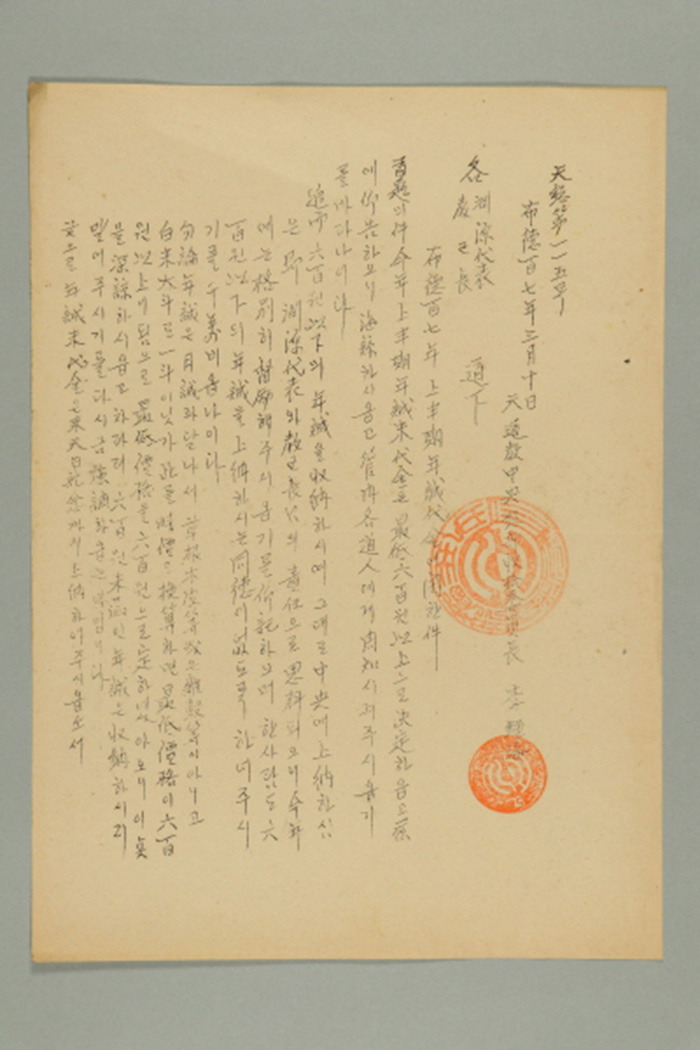 天總第一一五号
布德百七年三月十日
天道教中央總部 長 李
各 淵源代表
敎区長
通下
布德百七年 上半期年誠代金 関한件
首題의件今年上半期年誠米代金은 最低六百원以上으로決定하옵고玆
에仰告하오니海諒하시옵고管內各道人에게周知시켜주시옵기
를바라나이다
追而 六百원以下의年誠을收納하시며그대로中央에上納하심
은 即 淵源代表와敎区長님의責任으로思料되오니今和
에는格別히督勵해주시옵기를仰託하오며 한사람도六
百원以下의年誠을上納하시는同德이없도록 하여주시
기를 千萬비옵나이다
勿論年誠은月誠과달라서 草根木皮等 또는雜穀等이아니고
白米大斗로一斗이닛가 此를時價로換算하면最低價格이六百
원以上이됨으로最低價格을六百원으로定하였아오니이点
을深諒하시옵고하나라도六百원未滿인年誠은收納하시지
말어주시기를다시금强調하옵는 니다
끝으로年誠米代金은來天日紀念까지上納하여주시옵소서